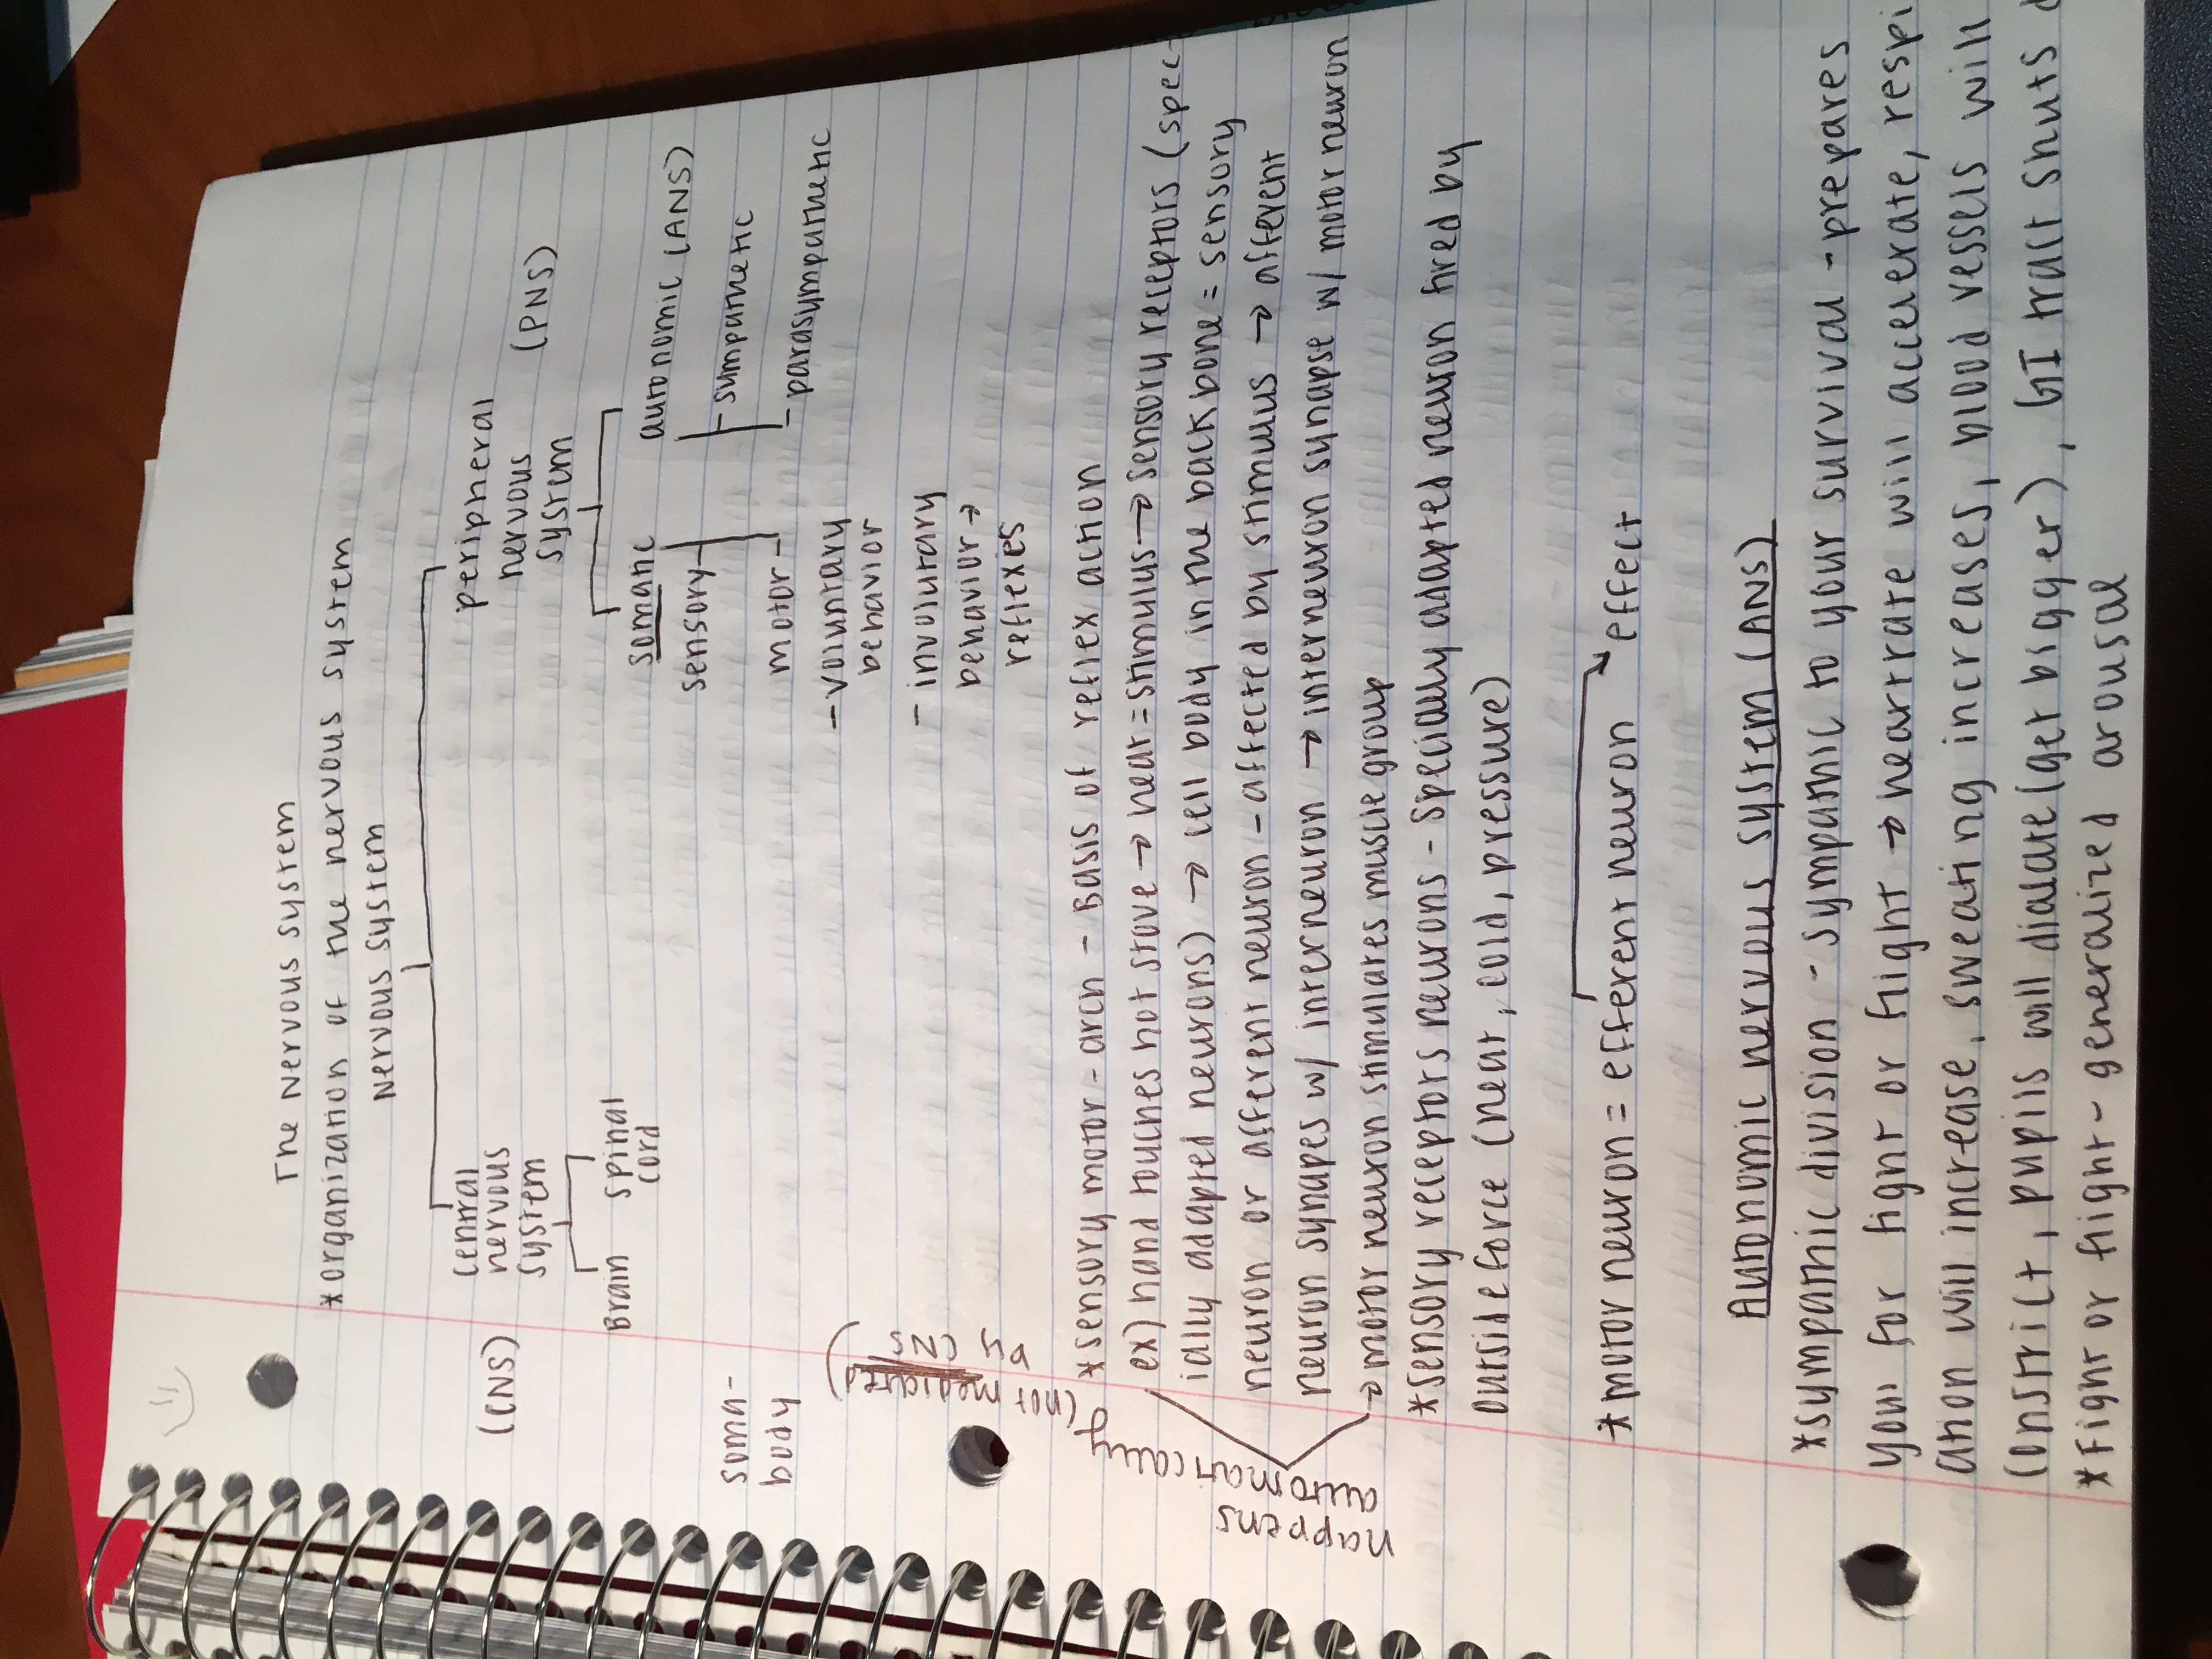 The Nervous System
*organization of the nervous system
Nervous system
central nervous system (CNS)
peripheral nervous system (PNS)
Brain spinal cord
somatic autonomic (ANS)
sensory sympathetic
motor parasympathetic
soma-
body
-voluntary
behavior
- involuntary
behavior →
reflexes
*sensory motor-arch - Basis of reflex action
ex) hand touches hot stove → heat=stimulus → sensory receptors (spec-
ially adapted neurons) → cell body in the back bone = sensory
neuron or afferent neuron - affected by stimulus → afferent
neuron synapes w/ interneuron → interneuron synapse w/ motor neuron
→ motor neuron stimulates muscle group
happens
automatically
(not mediated
by CNS)
*sensory receptors neurons - specially adapted neuron fired by
outside force (heat, cold, pressure)
*motor neuron = efferent neuron effect
Autonomic nervous system (ANS)
*sympathic division - sympathic to your survival - prepares
you for fight or flight → heartrate will accelerate, respi
ation will increase, sweating increases, blood vessels will
constrict, pupils will dialate (get bigger), GI tract shuts
*Fight or flight - generalized arousal